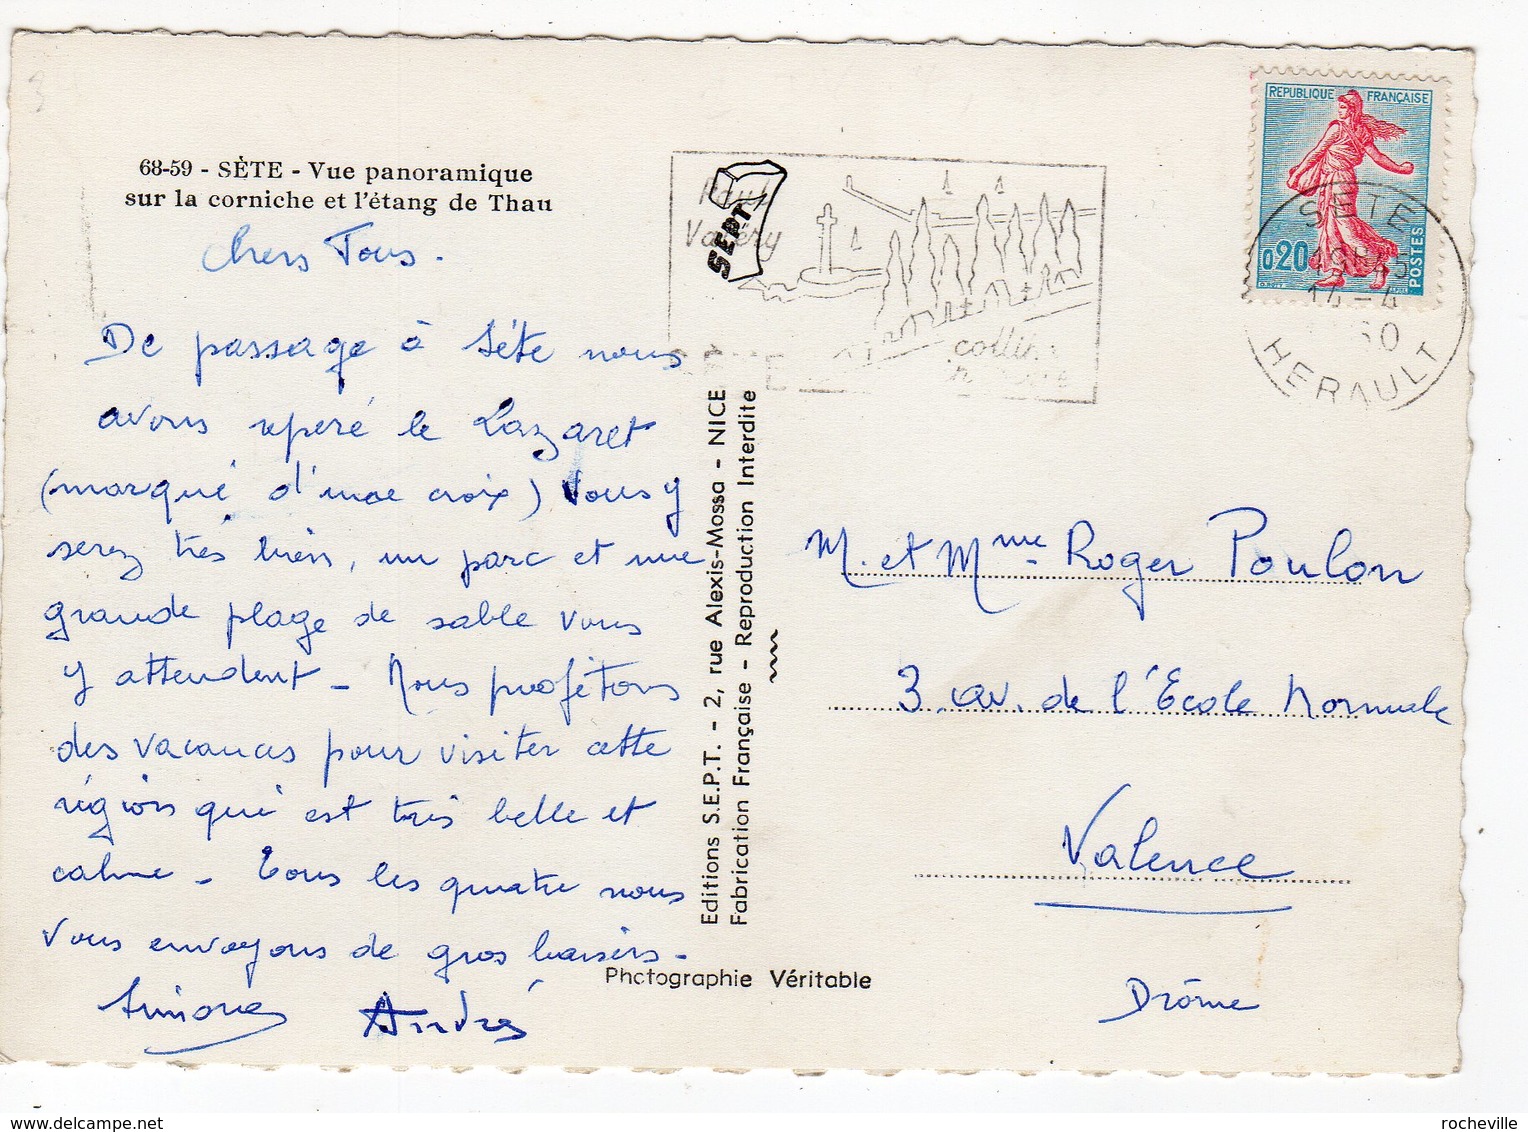 68-59 - SÈTE - Vue panoramique
sur la corniche et l'étang de Thau
Chers Tous.
De passage à Sète nous
avons repéré le Lazaret
(marqué d'une croix) Vous y
serez très bien, un parc et une
grande plage de sable vous
y attendent - Nous profitons
des vacances pour visiter cette
région qui est très belle et
calme - Tous les quatre nous
vous envoyons de gros baisers -
Simone André
Paul
Valéry
SEPT
REPUBLIQUE FRANÇAISE
0,20
POSTES
SETE
14-4
HERAULT
Editions S.E.P.T. - 2, rue Alexis-Mossa - NICE
Fabrication Française - Reproduction Interdite
Photographie Véritable
M. et Mme Roger Poulon
3. av. de l'Ecole Normale
Valence
Drôme
www.delcampe.net
rocheville